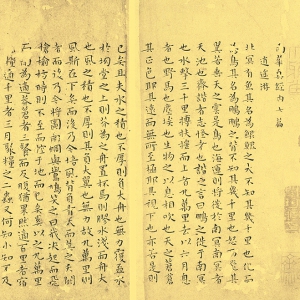 南華真經內七篇
逍遙遊
北冥有魚其名為鯤鯤之大不知其幾千里也化而
為鳥其名為鵬鵬之背不知其幾千里也怒而飛其
翼若垂天之雲是鳥也海運則將徙於南冥南冥者
天池也齊諧者志怪者也諧之言曰鵬之徙於南冥
也水擊三千里摶扶搖而上者九萬里去以六月息
者也野馬也塵埃也生物之以息相吹也天之蒼蒼
其正色邪其遠而無所至極邪其視下也亦若是則
已矣且夫水之積也不厚則負大舟也無力覆盃水
於坳堂之上則芥為之舟置杯焉則膠水淺而舟大
也風之積也不厚則其負大翼也無力故九萬里則
風斯在下矣而後乃今培風背負青天而莫之夭閼
者而後乃今將圖南蜩與鷽鳩笑之曰我決起而飛
搶榆枋時則不至而控於地而已矣奚以之九萬里
而南為適莽蒼者三飡而反腹猶果然適百里者宿
糧適千里者三月聚糧之二蟲又何知小知不及